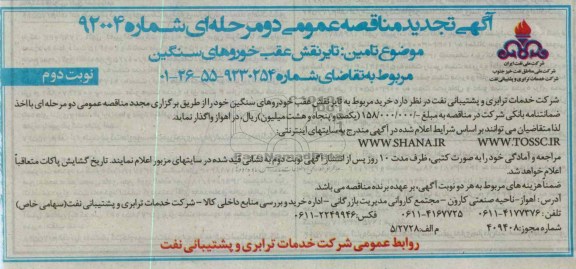 آگهی تجدید مناقصه عمومی دو مرحله ای شماره ۹۲۰۰۴
موضوع تامین: تایر نقش عقب خوروهای سنگین
مربوط به تقاضای شماره ۹۲۳۰۲۵۴-۵۵-۲۶-۰۱
نوبت دوم
شرکت ملی نفت ایران
شرکت ملی مناطق نفت خیز جنوب
شرکت خدمات ترابری و پشتیبانی نفت
شرکت خدمات ترابری و پشتیبانی نفت در نظر دارد خرید مربوط به تایر نقش عقب خودروهای سنگین خود را از طریق برگزاری مجدد مناقصه عمومی دو مرحله ای با اخذ
ضمانتنامه بانکی شرکت در مناقصه به مبلغ -/۱۵۸/۰۰۰/۰۰۰ (یکصد و پنجاه و هشت میلیون) ریال، در اهواز واگذار نماید.
لذا متقاضیان می توانند بر اساس شرایط اعلام شده در آگهی مندرج در سایتهای اینترنتی:
WWW.SHANA.IR WWW.TOSSC.IR
مراجعه و آمادگی خود را به صورت کتبی، ظرف مدت ۱۰ روز پس از انتشار آگهی نوبت دوم به نشانی قید شده در سایتهای مزبور اعلام نمایند. تاریخ گشایش پاکات متعاقباً
اعلام خواهد شد.
ضمناً هزینه های مربوط به هر دو نوبت آگهی، بر عهده برنده مناقصه می باشد.
آدرس: اهواز - ناحیه صنعتی کارون - مجتمع کاروانی مدیریت بازرگانی - اداره خرید و بررسی منابع داخلی کالا - شرکت خدمات ترابری و پشتیبانی نفت (سهامی خاص)
تلفن: ۴۱۷۷۳۷۶-۰۶۱۱ ۴۱۶۷۷۲۵-۰۶۱۱ فکس: ۲۲۴۹۹۴۶-۰۶۱۱
شماره مجوز: ۴۰۹۴۰۸ م الف: ۵/۲۷۲۸
روابط عمومی شرکت خدمات ترابری و پشتیبانی نفت